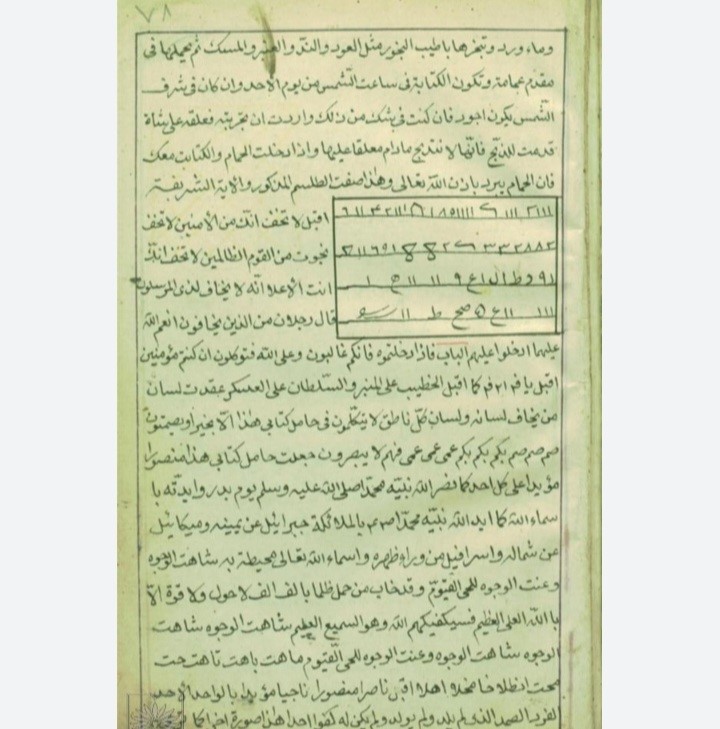 ٧٨
وماء ورد وتبخرها باطيب البخور مثل العود والند والعنبر والمسك ثم يحملها فى
مقدم عمامته وتكون الكتابة فى ساعت الشمس من يوم الاحد وان كان فى شرف
الشمس يكون اجود فان كنت فى شك من ذلك واردت ان تجربته فعلقه على شاة
قدمت للذبح فانها لا تنذبح مادام معلقا عليها واذا دخلت الحمام والكتابت معك
فان الحمام يبرد باذن الله تعالى وهذا صفت الطلسم المذكور والاية الشريفة
اقبل لا تخف انك من الامنين لا تخف
نجوت من القوم الظالمين لا تخف انك
انت الاعلا انه لا يخاف لدى المرسلون
قال رجلان من الذين يخافون انعم الله
عليهما ادخلوا عليهم الباب فاذا دخلتموه فانكم غالبون وعلى الله فتوكلوا ان كنتم مؤمنين
اقبل يا كما اقبل الخطيب على المنبر والسلطان على العسكر عقدت لسان
من يخاف لسانه ولسان كل ناطق لا يتكلمون فى حامل كتابى هذا الا بخير او يصمتون
صم صم صم بكم بكم بكم عمى عمى عمى فهم لا يبصرون جعلت حامل كتابى هذا منصورا
مؤيدا على كل احد كما نصر الله نبيه محمدا صلى الله عليه وسلم يوم بدر وايدته با
سماء الله كما ايد الله نبيه محمدا بالملائكة جبرائيل عن يمينه وميكائيل
عن شماله واسرافيل من وراء ظهره واسماء الله تعالى محيطة به شاهت الوجوه
وعنت الوجوه للحى القيوم وقد خاب من حمل ظلما بالف الف لاحول ولا قوة الا
با الله العلى العظيم فسيكفيكهم الله وهو السميع العظيم شاهت الوجوه شاهت
الوجوه شاهت الوجوه وعنت الوجوه للحى القيوم ماهت باهت تاهت
ناصرا منصورا ناجيا مؤيدا بالواحد الاحد
الفرد الصمد الذى لم يلد ولم يولد ولم يكن له كفوا احد هذا صورة